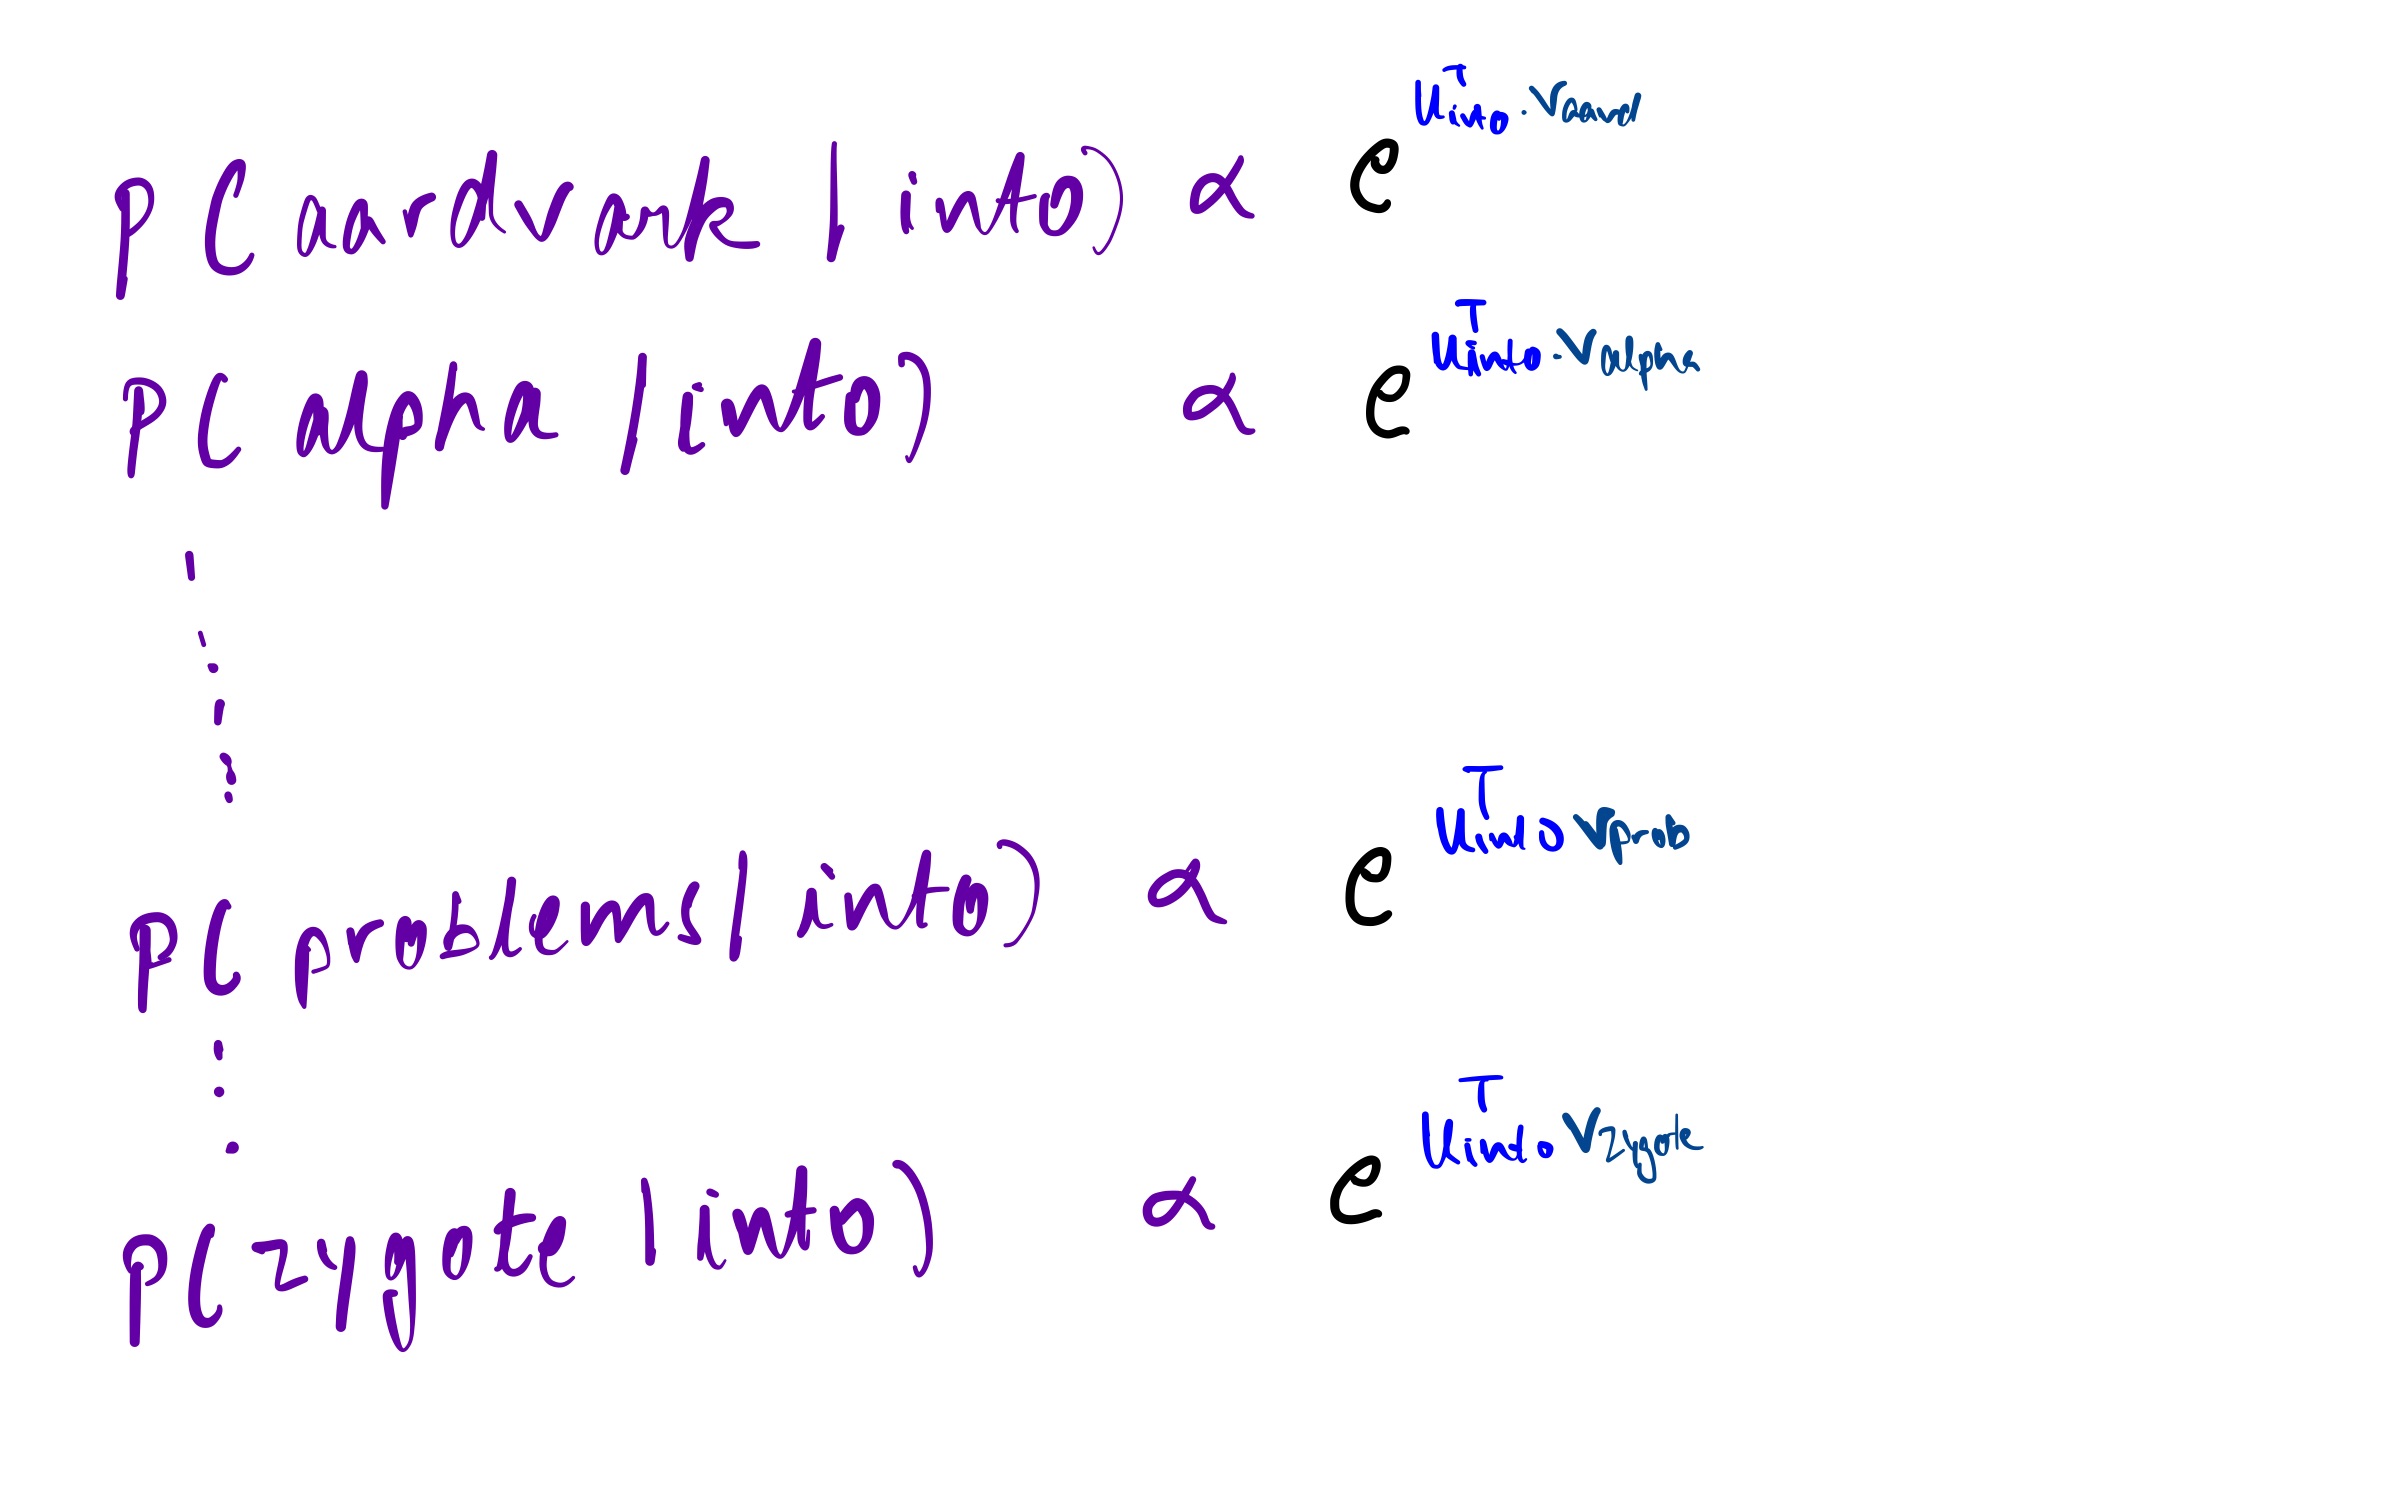 p( aardvark | into) ∝ e^{u_{into}^T · v_{aard}}
p( alpha | into) ∝ e^{u_{into}^T · v_{alpha}}
p( problems | into) ∝ e^{u_{into}^T v_{prob}}
p( zygote | into) ∝ e^{u_{into}^T v_{zygote}}